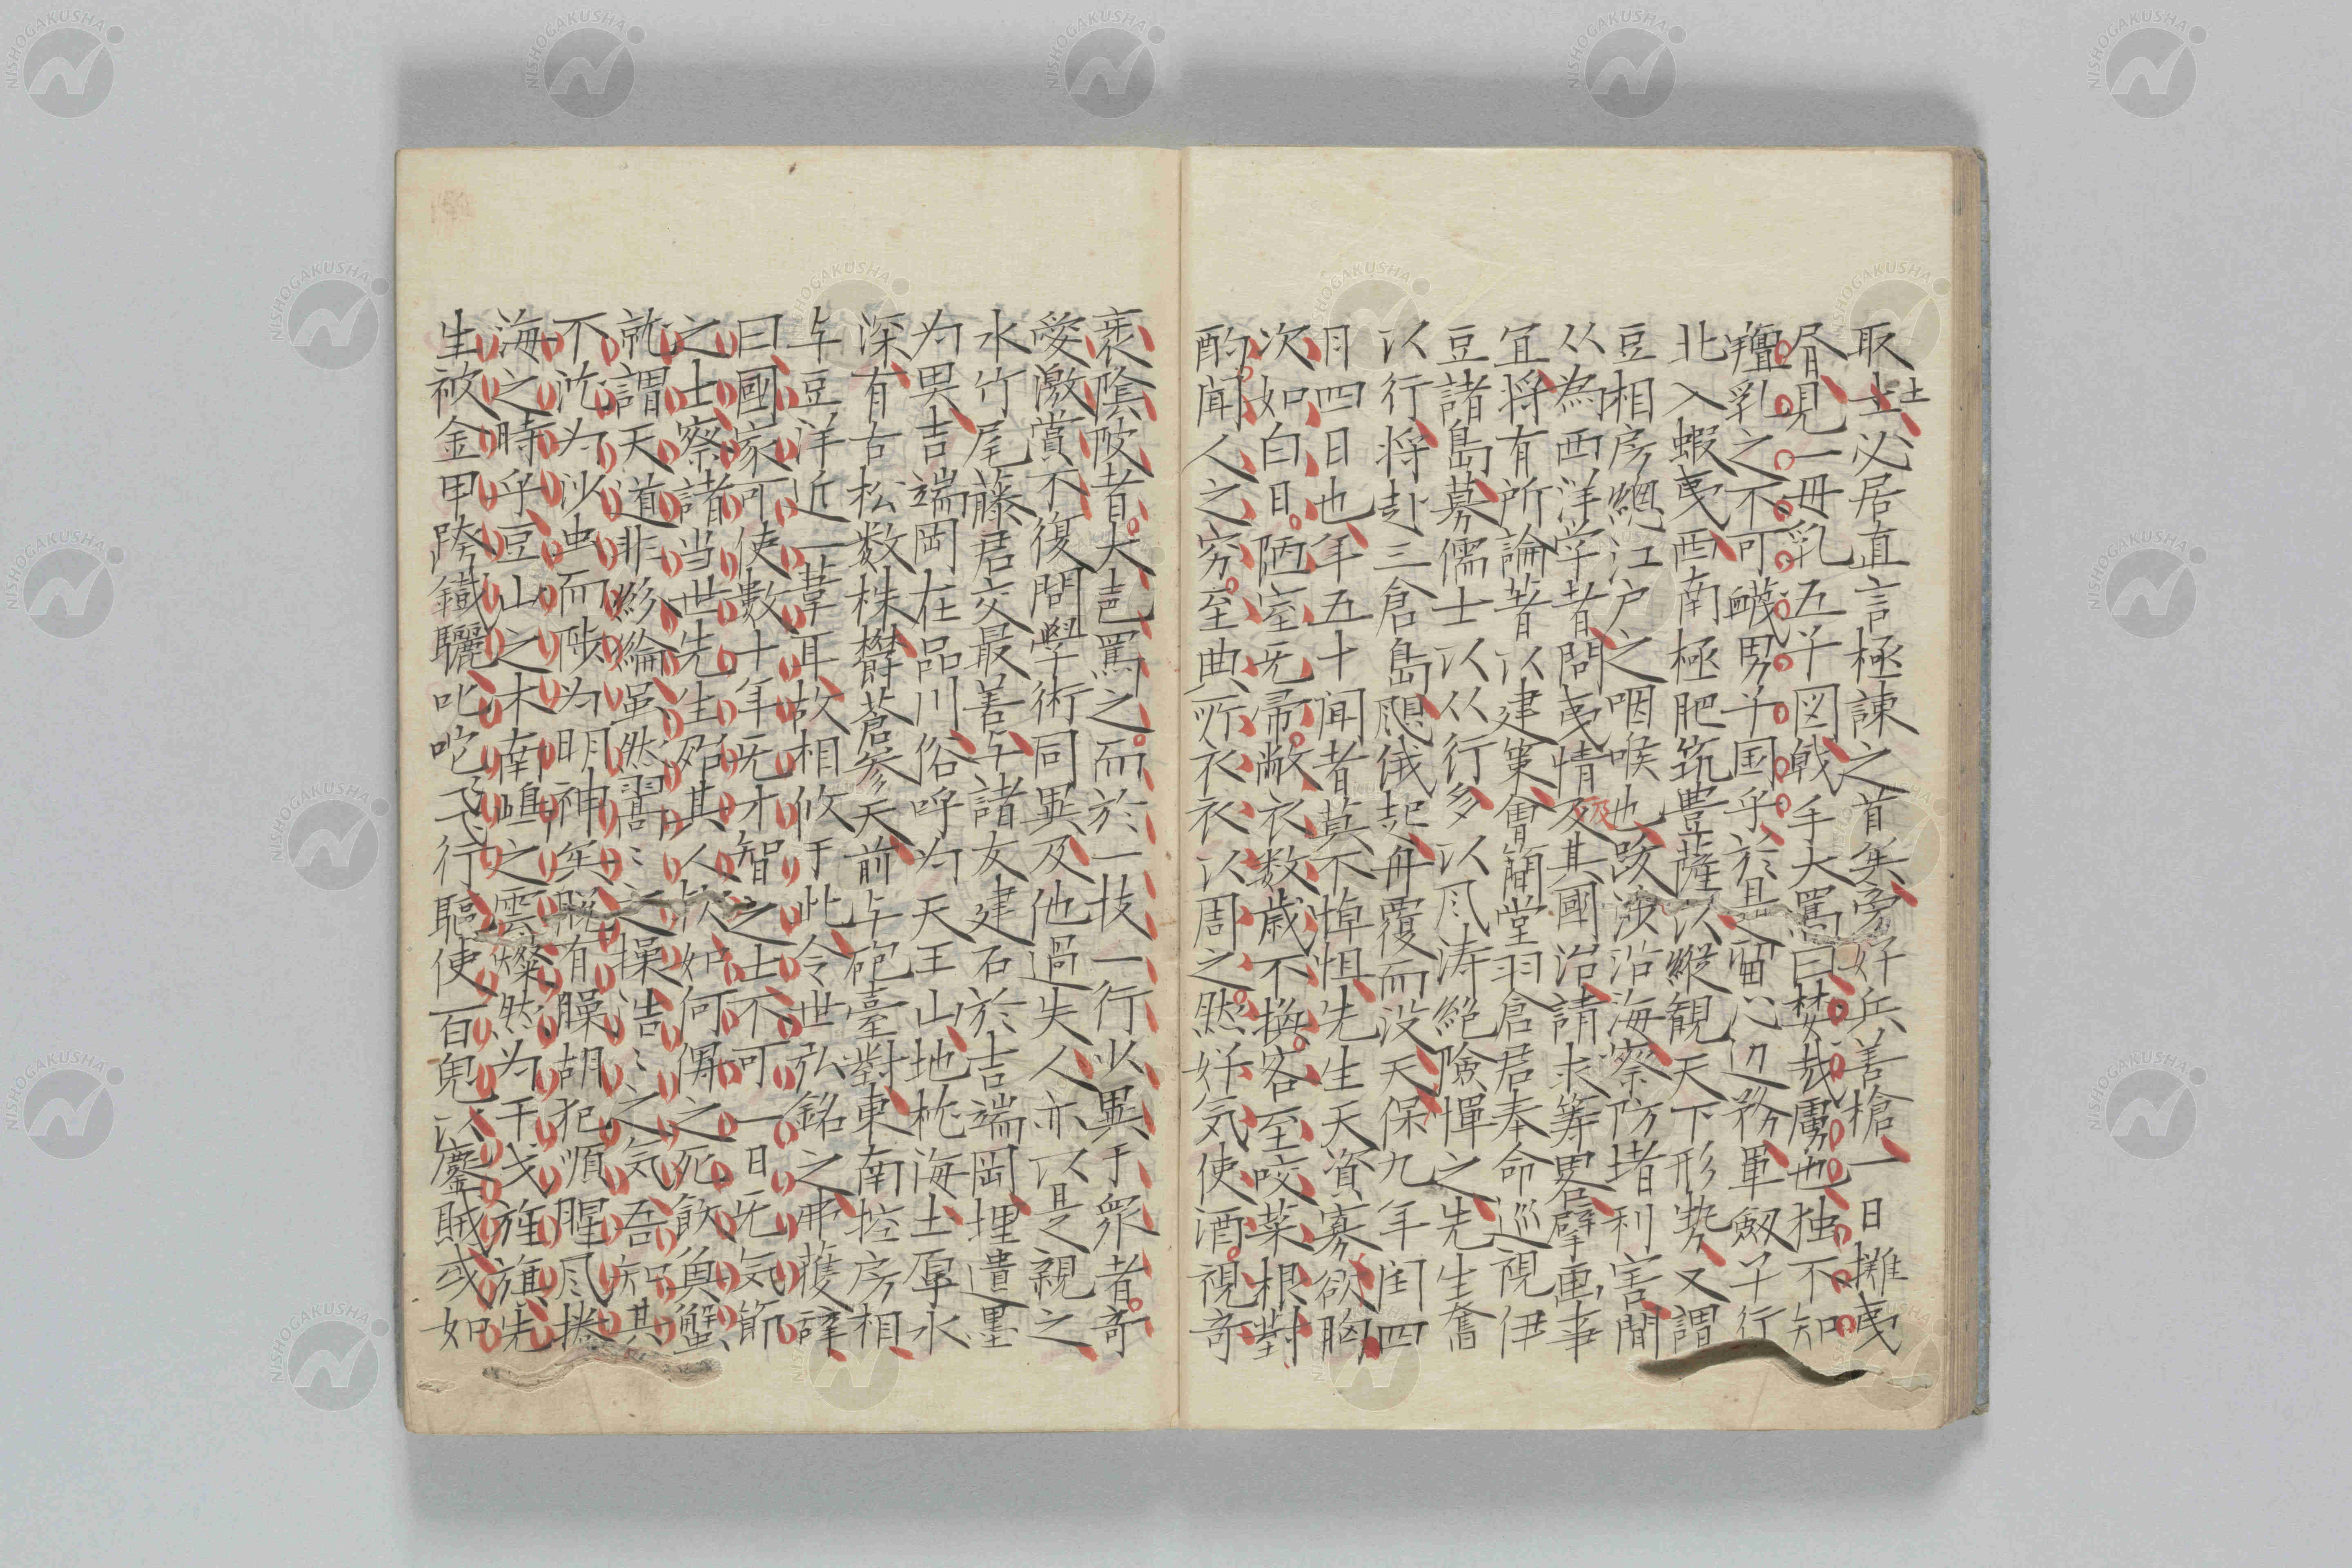 取士必居直言極諫之首矣旁好兵善槍一日摊夷
士
胥見一毋乳五子図戟手大罵曰婪哉虜也独不知
羶乳之不可衊男子国乎於是畱心辺務単劔子行
北入蝦夷西南極肥筑豊薩以縦観天下形勢又謂
豆相房緫江戸之咽喉也跋渉沿海察防堵利害間
从為西洋学者問夷情及其國治請求筹畧擘画事
宜将有所論著以建策會簡堂羽倉君奉命巡視伊
豆諸島募儒士以从行多以风涛絶険憚之先生奮
以行将赴三倉島颶俄起舟覆而没天保九年閏四
月四日也年五十闻者莫不悼惧先生天資寡欲胸
次如白日陋室无帚敝衣数歳不換客至咬菜根對
酌闻人之穷至典所衣衣以周之然好気使酒視奇
衺陰陂者大詬罵之而於一技一行以異于衆者奇
愛激賞不復問學術同異及他過失人亦以是親之
水竹尾藤君交最善与諸友建石於吉端岡埋遺墨
为畀吉端岡在品川俗呼为天王山地枕海土厚水
深有古松数株欝蒼参天前与砲臺對東南控房相
与豆洋近一葦耳故相攸于此令世弘銘之弗獲辞
曰國家可使數十年无才智之士不可一日无気節
之士察諸当世先生殆其人欤如何俱之死飲奠蟹
就謂天道非紾綸虽然謵〻之操浩〻之気吾知其
不沈为沙虫而陟为明神矣脱有臊胡犯順腥风捲
海之時乎豆山之木南嶇之雲燦然为干戈旌旗先
生被金甲跨鐵驪叱咜飞行駆使百鬼以鏖賊或如
NISHOGAKUSHA